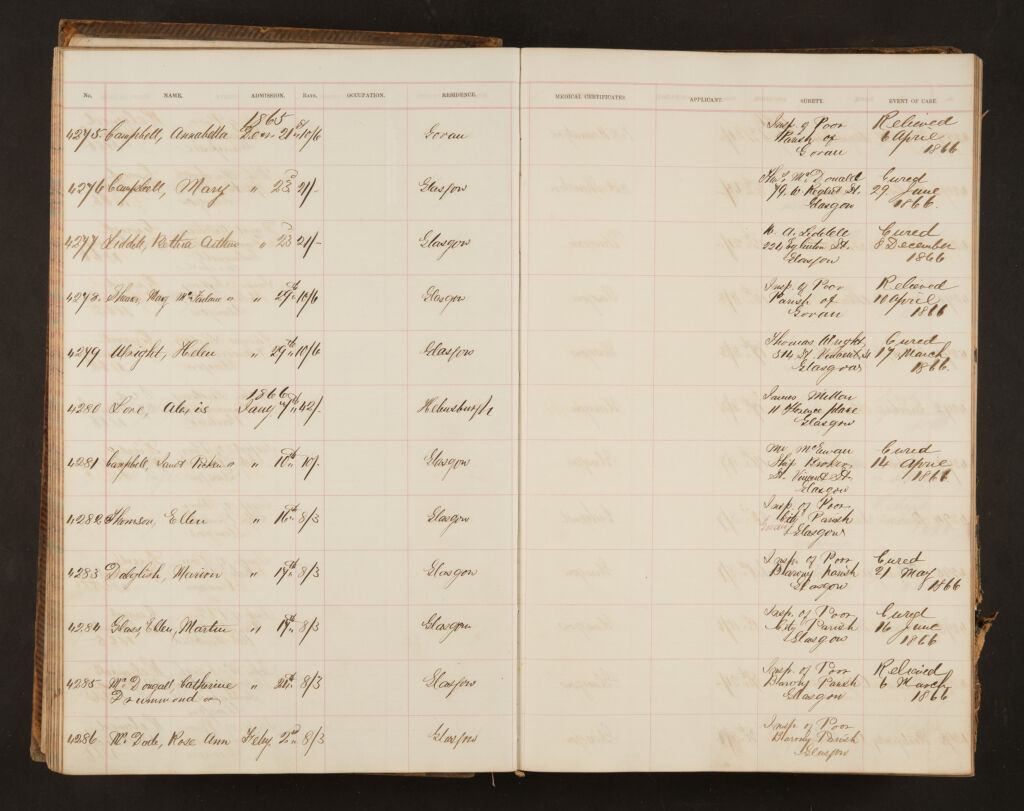 No. NAME. ADMISSION. RATE. OCCUPATION. RESIDENCE. MEDICAL CERTIFICATES. APPLICANT. SURETY. EVENT OF CASE.
1865
4275 Campbell, Annabella Decr. 21st 10/6 Govan Insp. of Poor Relieved
Parish of 6 April
Govan 1866
4276 Campbell, Mary " 23 21/- Glasgow McDonald Cured
79. W. Regent St. 29 June
Glasgow 1866.
4277 Liddell, " 23 21/- Glasgow A. Liddell Cured
Eglinton St. 8 December
Glasgow 1866
4278. Shearer, Mary McFarlane or " 29th 10/6 Glasgow Insp. of Poor Relieved
Parish of 10 April
Govan 1866
4279 Wright, Helen " 29th 10/6 Glasgow Thomas Wright, Cured
314 St. Vincent St 17 March
Glasgow 1866.
1866
4280 Love, Alexis Jany 7th 42/- Helensburgh James
11 Florence place
Glasgow
4281 Campbell, Janet or " 10th 10/- Glasgow Mr McEwan Cured
Ship Broker 14 April
St. Vincent St. 1866
Glasgow
4282 Thomson, Ellen " 16th 8/3 Glasgow Insp. of Poor
City Parish
Govan Glasgow
4283 Dalglish, Marion " 17th 8/3 Glasgow Insp. of Poor Cured
Barony Parish 21 May
Glasgow 1866
4284 Ellen, Martin " 19th 8/3 Glasgow Insp. of Poor Cured
City Parish 16 June
Glasgow 1866
4285 McDougall, Catherine " 8/3 Glasgow Insp. of Poor Relieved
Drummond or Barony Parish 6 March
Glasgow 1866
4286 McDade, Rose Ann Feby 2nd 8/3 Glasgow Insp. of Poor
Barony Parish
Glasgow